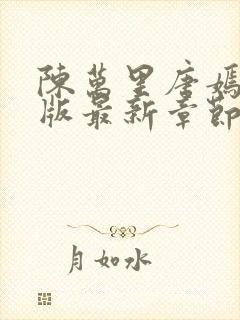 陳萬里唐嫣
版最新章節
月如水